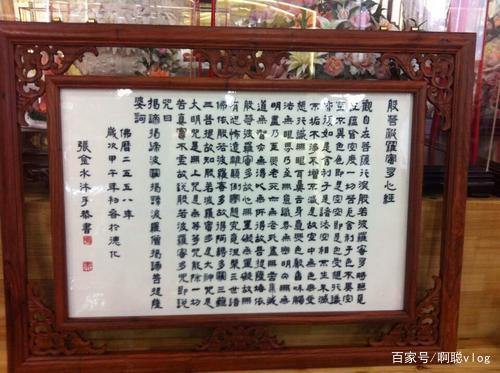 般若波羅蜜多心經
觀自在菩薩行深般若波羅蜜多時照見
五蘊皆空度一切苦厄舍利子色不異空
空不異色色即是空空即是色受想行識
亦復如是舍利子是諸法空相不生不滅
不垢不淨不增不減是故空中無色無受
想行識無眼耳鼻舌身意無色聲香味觸
法無眼界乃至無意識界無無明亦無無
明盡乃至無老死亦無老死盡無苦集滅
道無智亦無得以無所得故菩提薩埵依
般若波羅蜜多故心無罣礙無罣礙故無
有恐怖遠離顛倒夢想究竟涅槃三世諸
佛依般若波羅蜜多故得阿耨多羅三藐
三菩提故知般若波羅蜜多是大神咒是
大明咒是無上咒是無等等咒能除一切
苦真實不虛故說般若波羅蜜多咒即說
咒曰
揭諦揭諦波羅揭諦波羅僧揭諦菩提薩
婆訶
佛曆二五五八年
歲次甲午年初春於德化
張金水沐手恭書
百家号/啊聪vlog